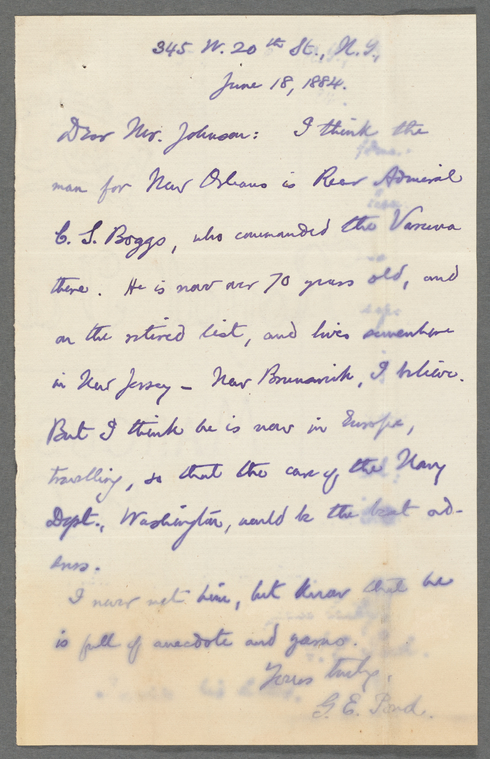 345 W. 20th St., N.Y.,
June 18, 1884.
Dear Mr. Johnson: I think the
man for New Orleans is Rear Admiral
C. S. Boggs, who commanded the Varuna
there. He is now over 70 years old, and
on the retired list, and lives somewhere
in New Jersey – New Brunswick, I believe.
But I think he is now in Europe,
travelling, so that the care of the Navy
Dept., Washington, would be the best ad-
dress.
I never met him, but know that he
is full of anecdote and yarns.
Yours truly,
G. E. Pond.